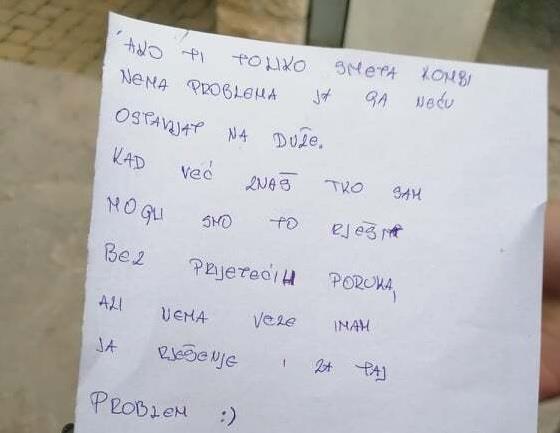 AKO TI TOLIKO SMETA KOMBI
NEMA PROBLEMA JA GA NEĆU
OSTAVLJAT NA DUŽE.
KAD VEĆ ZNAŠ TKO SAM
MOGLI SMO TO RJEŠIT
BEZ PRIJETEĆIH PORUKA,
ALI NEMA VEZE IMAM
JA RJEŠENJE I ZA TAJ
PROBLEM :)